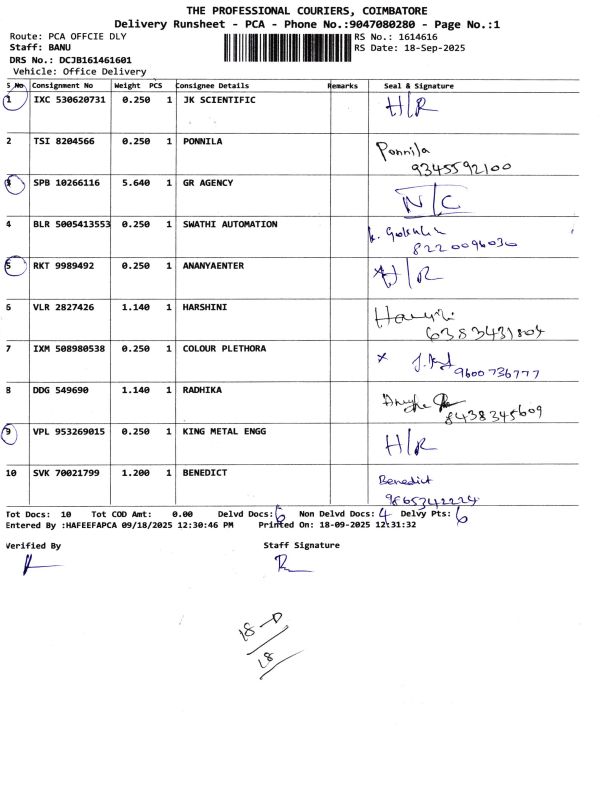 THE PROFESSIONAL COURIERS, COIMBATORE
Delivery Runsheet - PCA - Phone No.:9047080280 - Page No.:1
Route: PCA OFFCIE DLY RS No.: 1614616
Staff: BANU RS Date: 18-Sep-2025
DRS No.: DCJB161461601
Vehicle: Office Delivery
S No. Consignment No Weight PCS Consignee Details Remarks Seal & Signature
1 IXC 530620731 0.250 1 JK SCIENTIFIC H/R
2 TSI 8204566 0.250 1 PONNILA Ponnila
9345592100
3 SPB 10266116 5.640 1 GR AGENCY N/C
4 BLR 5005413553 0.250 1 SWATHI AUTOMATION
8220096030
5 RKT 9989492 0.250 1 ANANYAENTER H/R
6 VLR 2827426 1.140 1 HARSHINI
6383431804
7 IXM 508980538 0.250 1 COLOUR PLETHORA x
9600736777
8 DDG 549690 1.140 1 RADHIKA
8438345609
9 VPL 953269015 0.250 1 KING METAL ENGG H/R
10 SVK 70021799 1.200 1 BENEDICT Benedict
9865342224
Tot Docs: 10 Tot COD Amt: 0.00 Delvd Docs: 6 Non Delvd Docs: 4 Delvy Pts: 6
Entered By :HAFEEFAPCA 09/18/2025 12:30:46 PM Printed On: 18-09-2025 12:31:32
Verified By Staff Signature
18-D
18